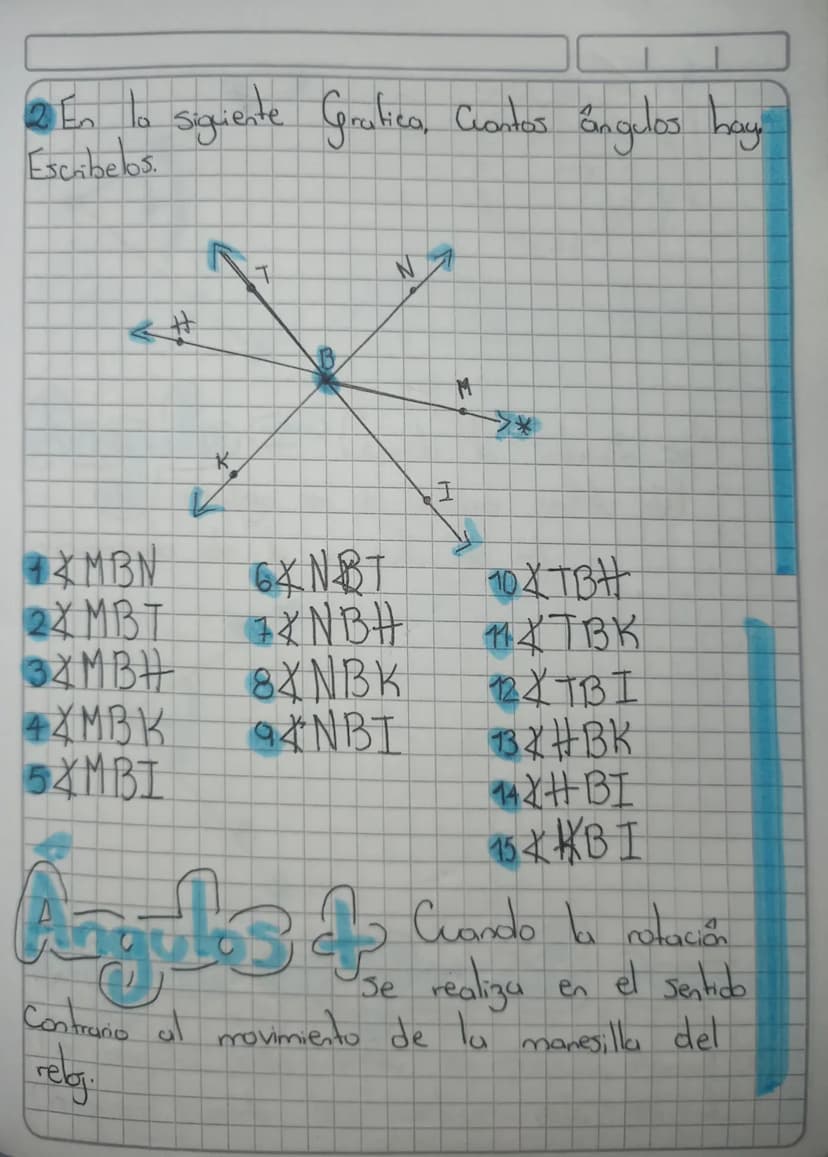 2 En la siguiente Grafica, Cuantos ángulos hay
Escribelos.
T
N
H
B
M
K
I
1 ∡MBN
2 ∡MBT
3 ∡MBH
4 ∡MBK
5 ∡MBI
6 ∡NBT
7 ∡NBH
8 ∡NBK
9 ∡NBI
10 ∡TBH
11 ∡TBK
12 ∡TBI
13 ∡HBK
14 ∡HBI
15 ∡KBI
Ángulos + Cuando la rotación
se realiza en el sentido
Contrario al movimiento de la manesilla del
reloj.